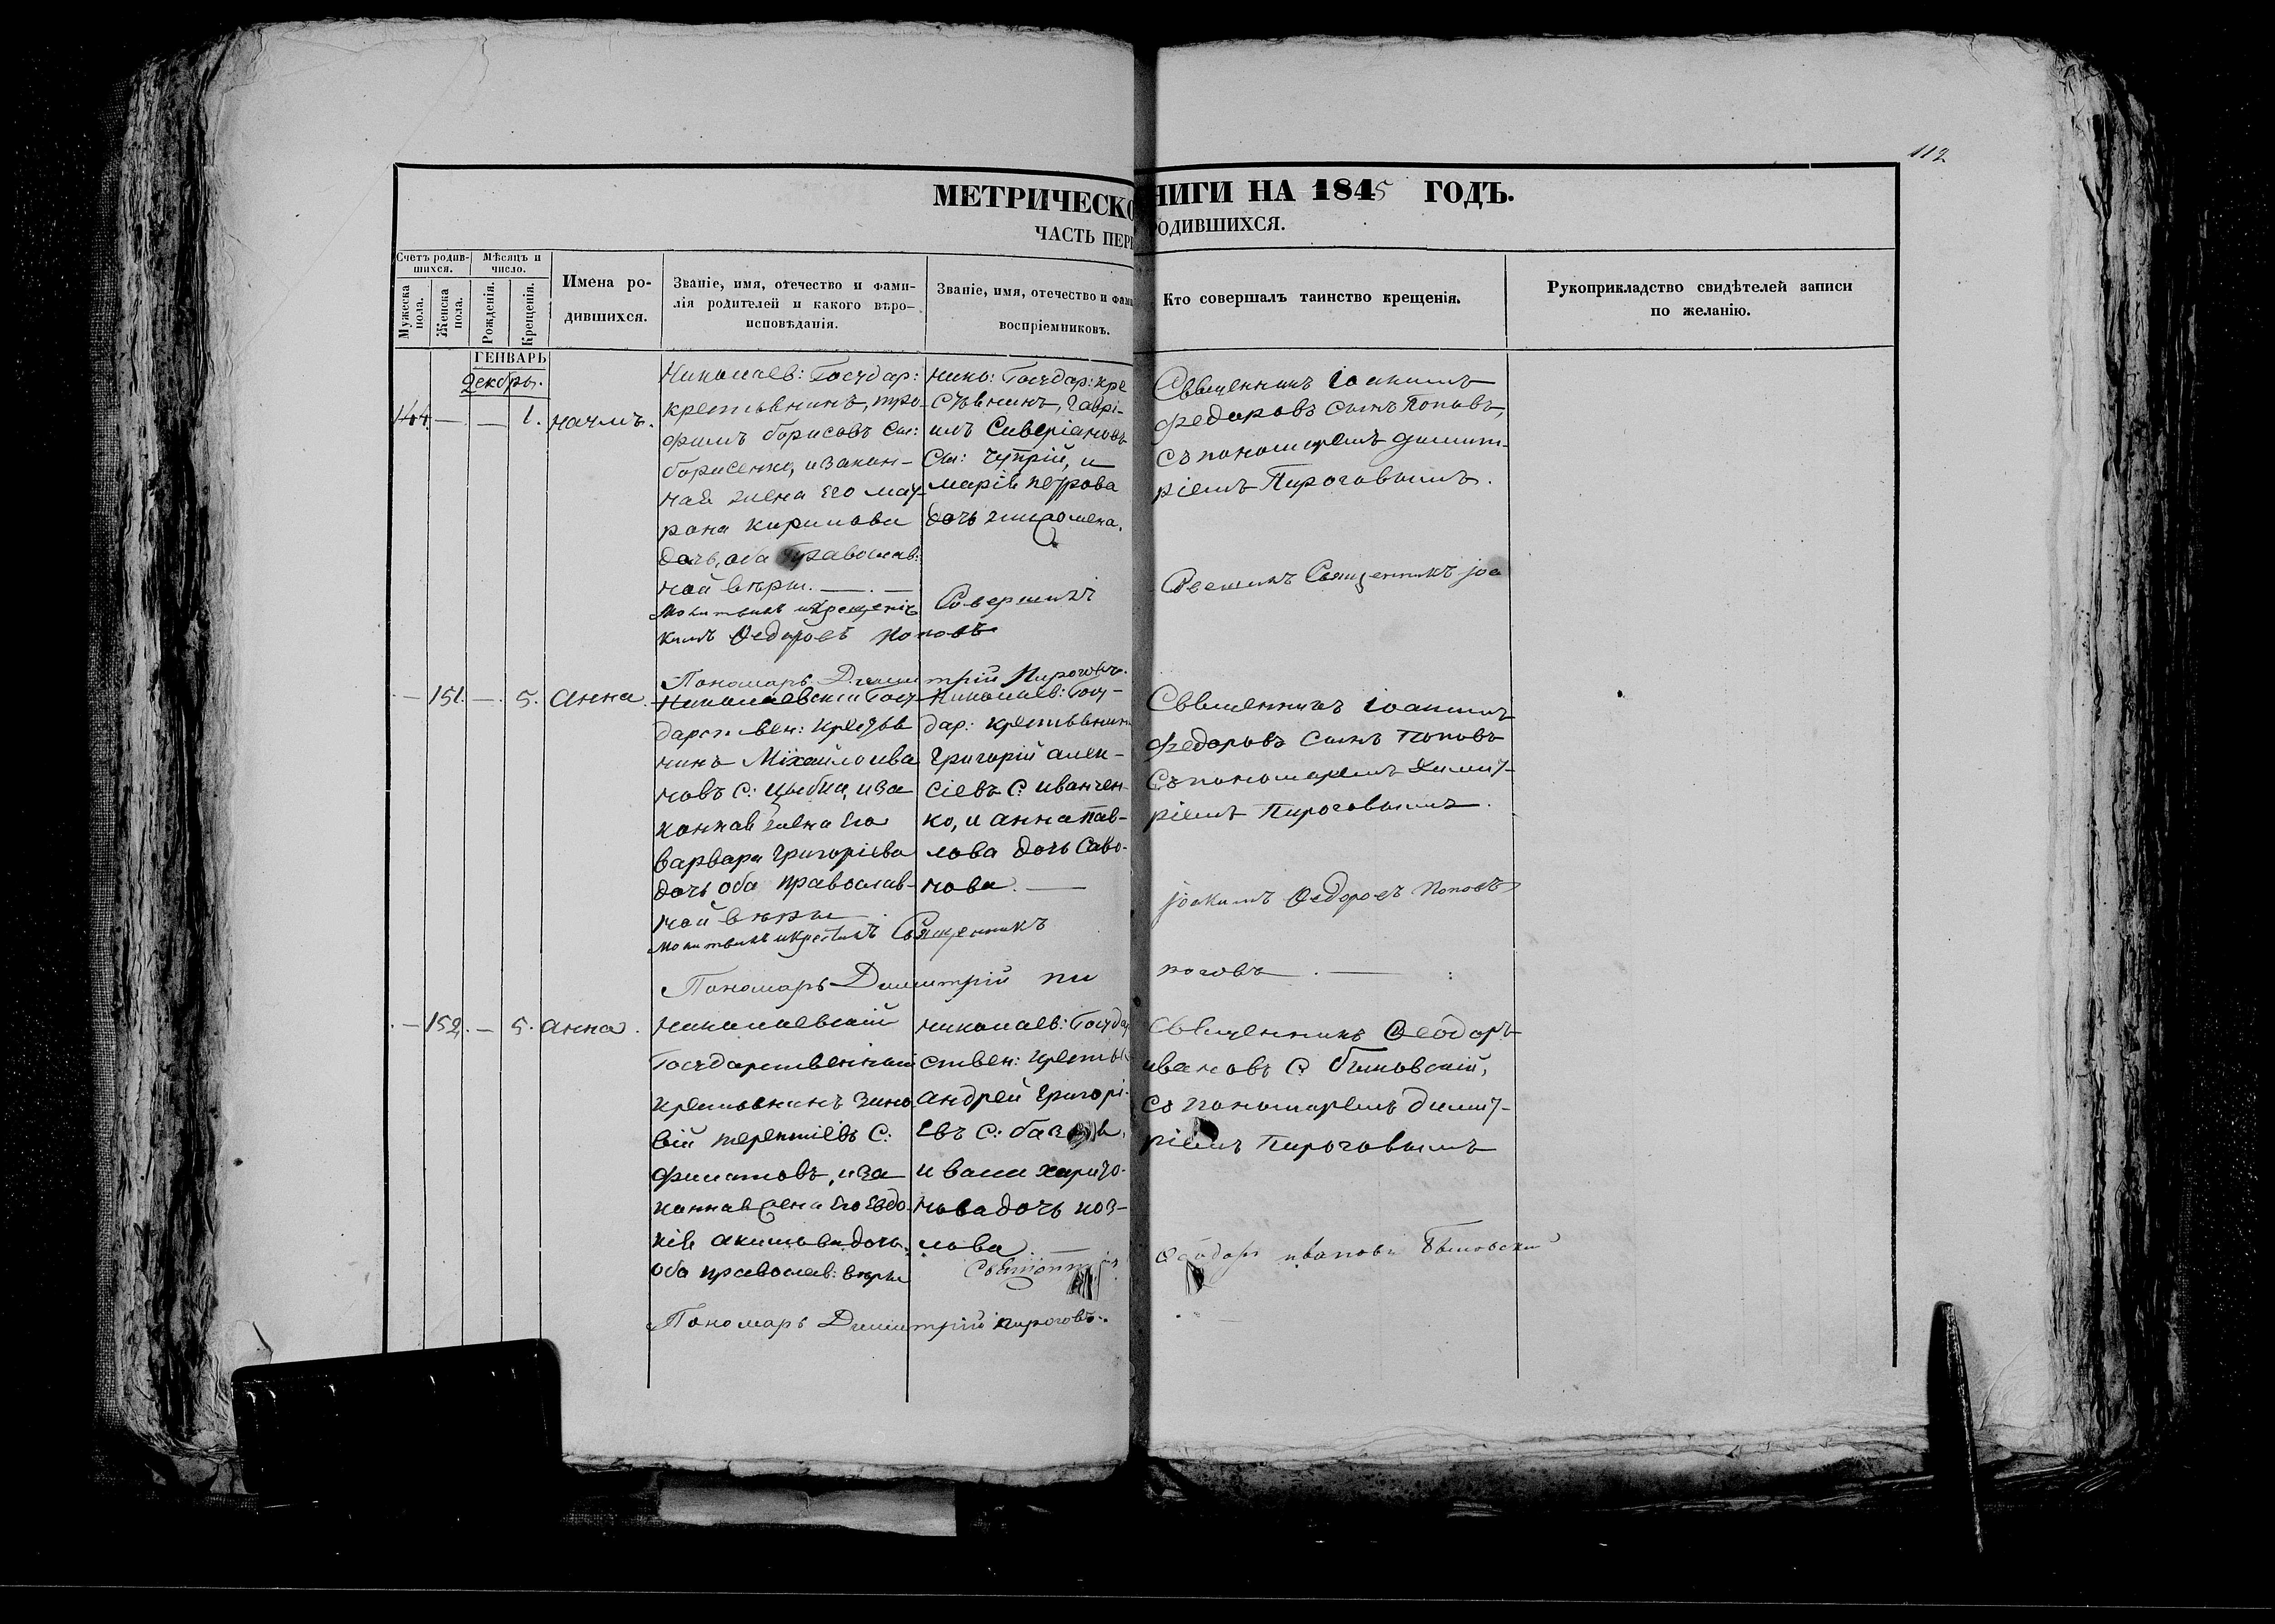 112
МЕТРИЧЕСКО НИГИ НА 1845 ГОДЪ.
ЧАСТЬ ПЕРВ РОДИВШИХСЯ.
Счетъ родив-
шихся.
Мужеска пола.
Женска пола.
Мѣсяцъ и
число.
Рожденія.
Крещенія.
Имена ро-
дившихся.
Званіе, имя, отечество и фами-
лія родителей и какого вѣро-
исповѣданія.
Званіе, имя, отечество и фами
воспріемниковъ.
Кто совершалъ таинство крещенія.
Рукоприкладство свидѣтелей записи
по желанію.
ГЕНВАРЬ
Декбрь.
144. — — 1. наумъ.
Николаев: Государ:
крестьянинъ, тро-
фимъ борисовъ сы:
борисенко, и закон-
ная жена его мат-
рона кирилова
дочь, оба Православ:
ной вѣры. —
Молитвилъ и крещеніе Совершилъ Священникъ јоа
кимъ Ѳедоровъ поповъ
Пономарь Димитрій Пироговъ.
нико: Государ: кре
стьянинъ, гаврі-
илъ Сиверіановъ
сы: чуприй, и
марія петрова
дочь
Священникъ іоакимъ
федоровъ сынъ Поповъ,
съ пономаремъ димит-
ріемъ Пироговымъ.
— 151. — 5. Анна.
Николаевскій Госу-
дарствен: крестья
нинъ Міхайло ива
новъ с: цыбка, и за
конная жена его
варвара григоріева
дочь оба православ-
ной вѣры
Молитвилъ и крестилъ Священникъ јоакимъ Ѳедоровъ Поповъ
Пономарь Димитрій пи роговъ
Николаев: Госу-
дар: крестьянин
Григорій алек-
сіевъ с: иванчен-
ко, и анна пав-
лова дочь Саво-
нова. —
Священникъ іоакимъ
федоровъ сынъ Поповъ
съ пономаремъ димит-
ріемъ Пироговымъ.
— 152. — 5. анна.
николаевскій
Государственный
крестьянинъ зино
вій терентіевъ с:
филатовъ, и за
конная жена его Евдо
кія акимова дочь,
оба православ: вѣры
николаев: Госуда
ствен: кресть
андрей григорі-
евъ с:
и васи харито-
нова дочь коз-
лова.
Священникъ Ѳеодоръ
ивановъ с: быковскій,
съ пономаремъ димит-
ріемъ Пироговымъ
Ѳеодоръ ивановъ Быковский
Пономарь Димитрій пироговъ.